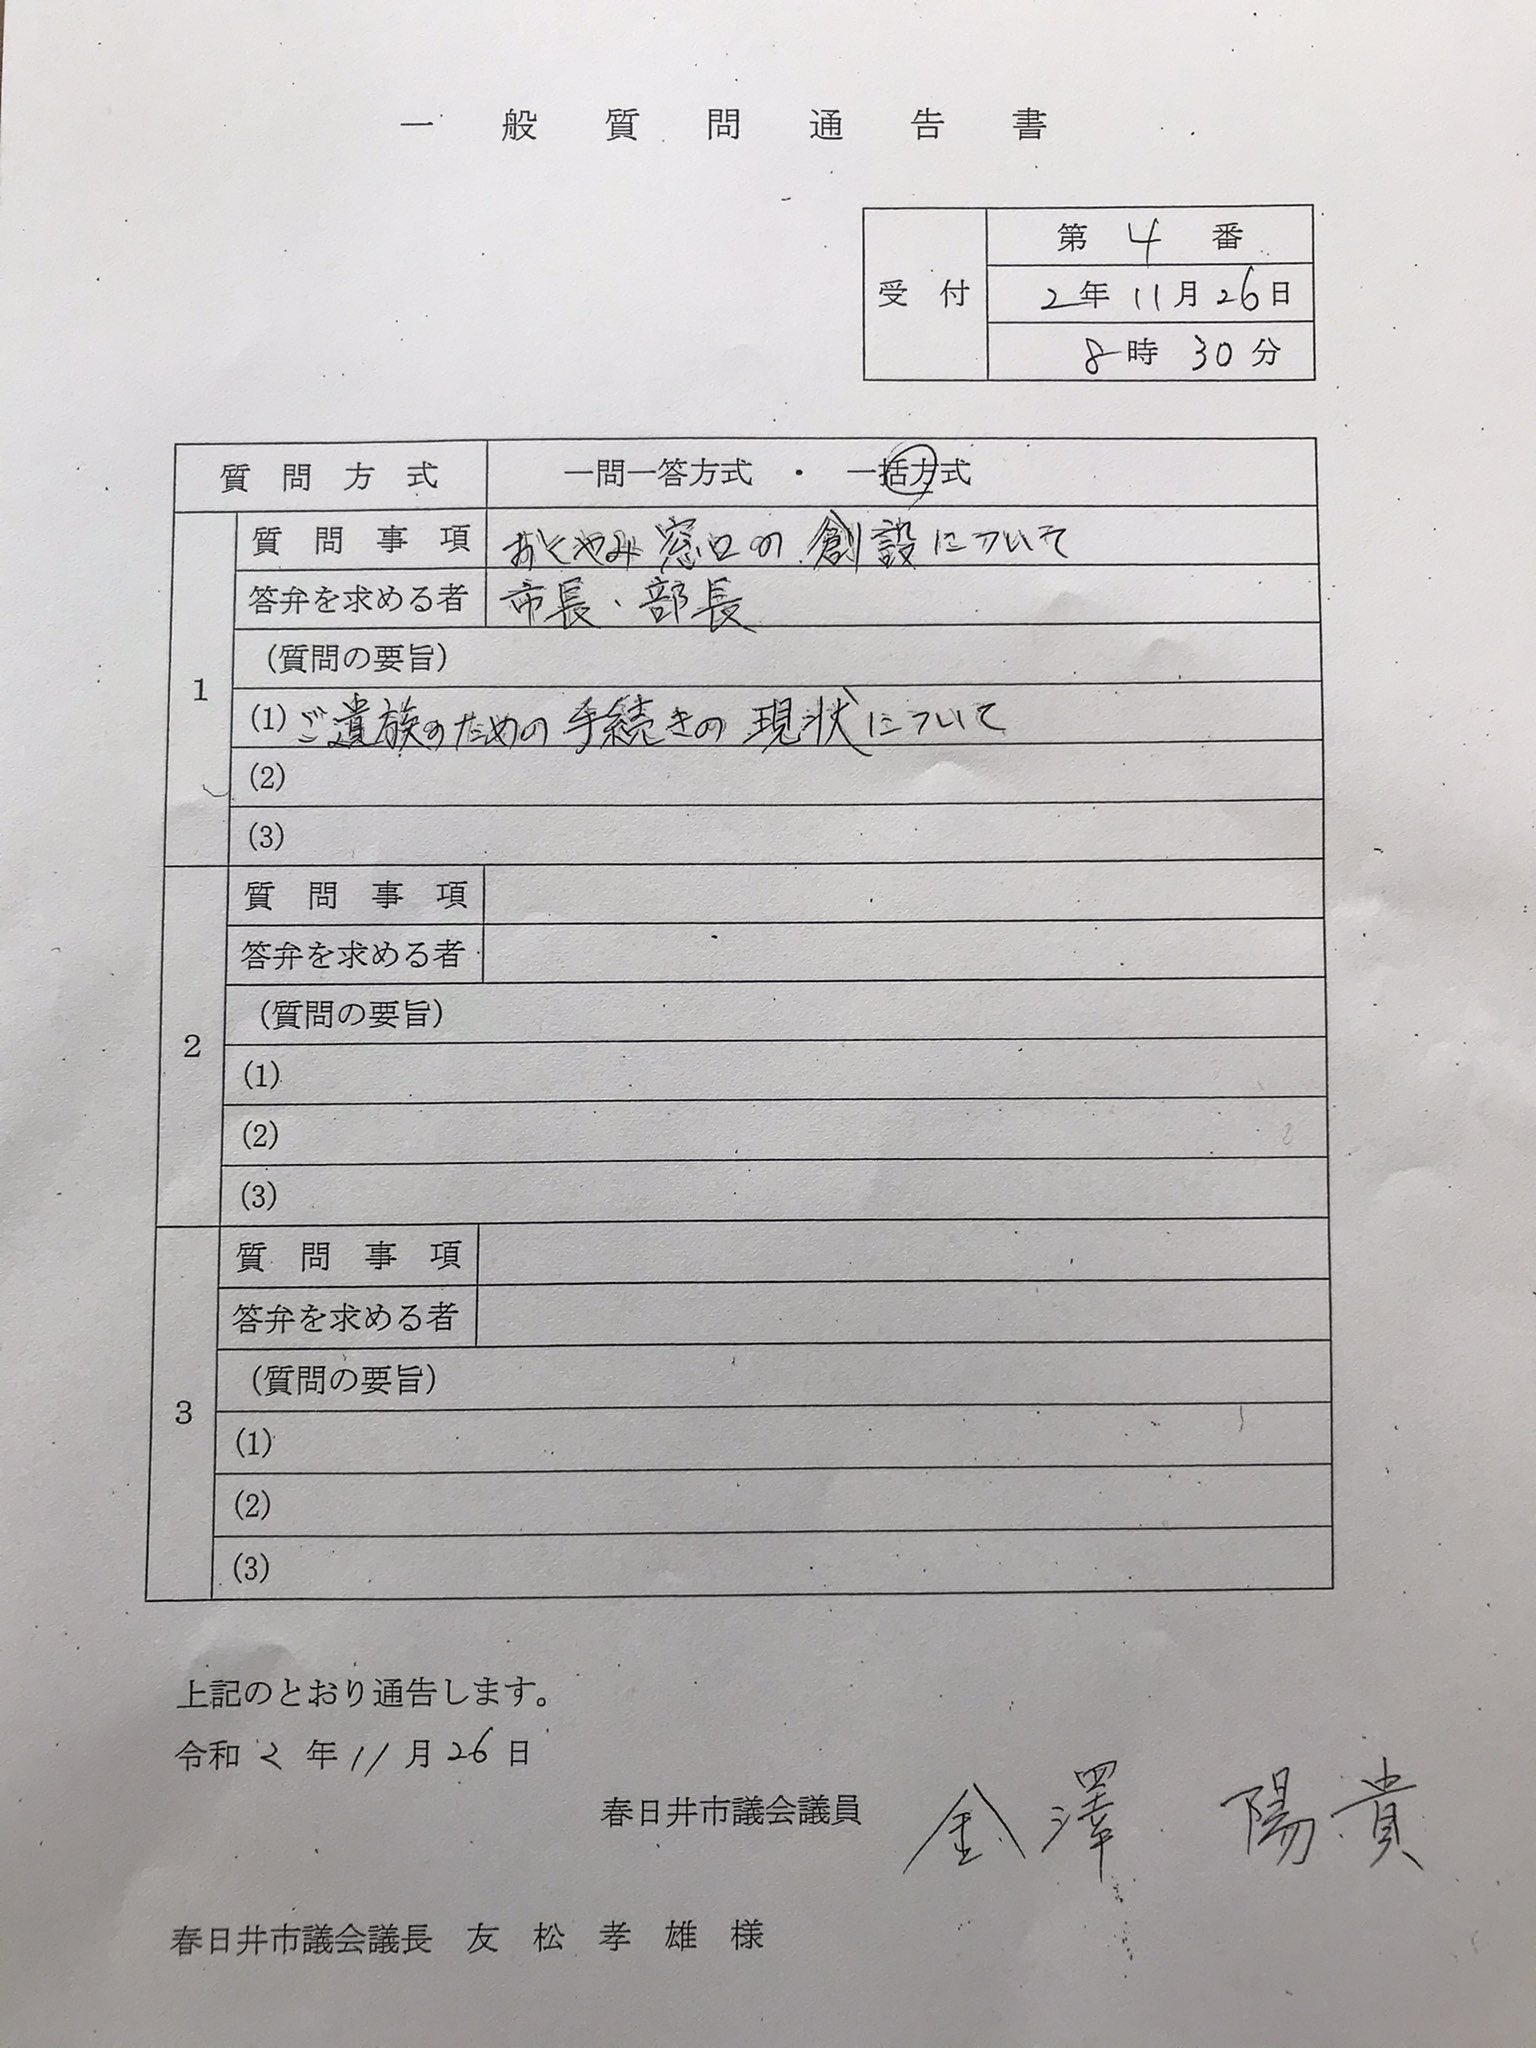 一般質問通告書
受付
第 4 番
2年 11月 26日
8時 30分
質問方式 一問一答方式 ・ 一括方式
1
質問事項 おくやみ窓口の創設について
答弁を求める者 市長、部長
（質問の要旨）
(1) ご遺族のための手続きの現状について
(2)
(3)
2
質問事項
答弁を求める者
（質問の要旨）
(1)
(2)
(3)
3
質問事項
答弁を求める者
（質問の要旨）
(1)
(2)
(3)
上記のとおり通告します。
令和 2 年 11 月 26 日
春日井市議会議員 金澤 陽貴
春日井市議会議長 友松孝雄様